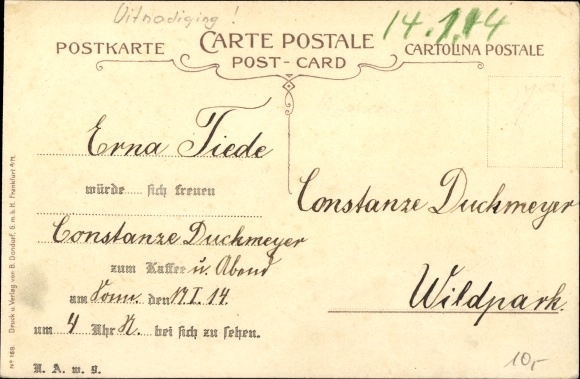 Uitnodiging!
14.1.14
POSTKARTE
CARTE POSTALE
POST-CARD
CARTOLINA POSTALE
Erna Tiede
würde sich freuen
Constanze Duckmeyer
zum Kaffee u. Abend
am Sonn. den 17.I.14.
um 4 Uhr N. bei sich zu sehen.
U. A. w. g.
Constanze Duckmeyer
Wildpark.
10,-
Nº 168. Druck u. Verlag von B. Dondorf, G.m.b.H. Frankfurt a/M.